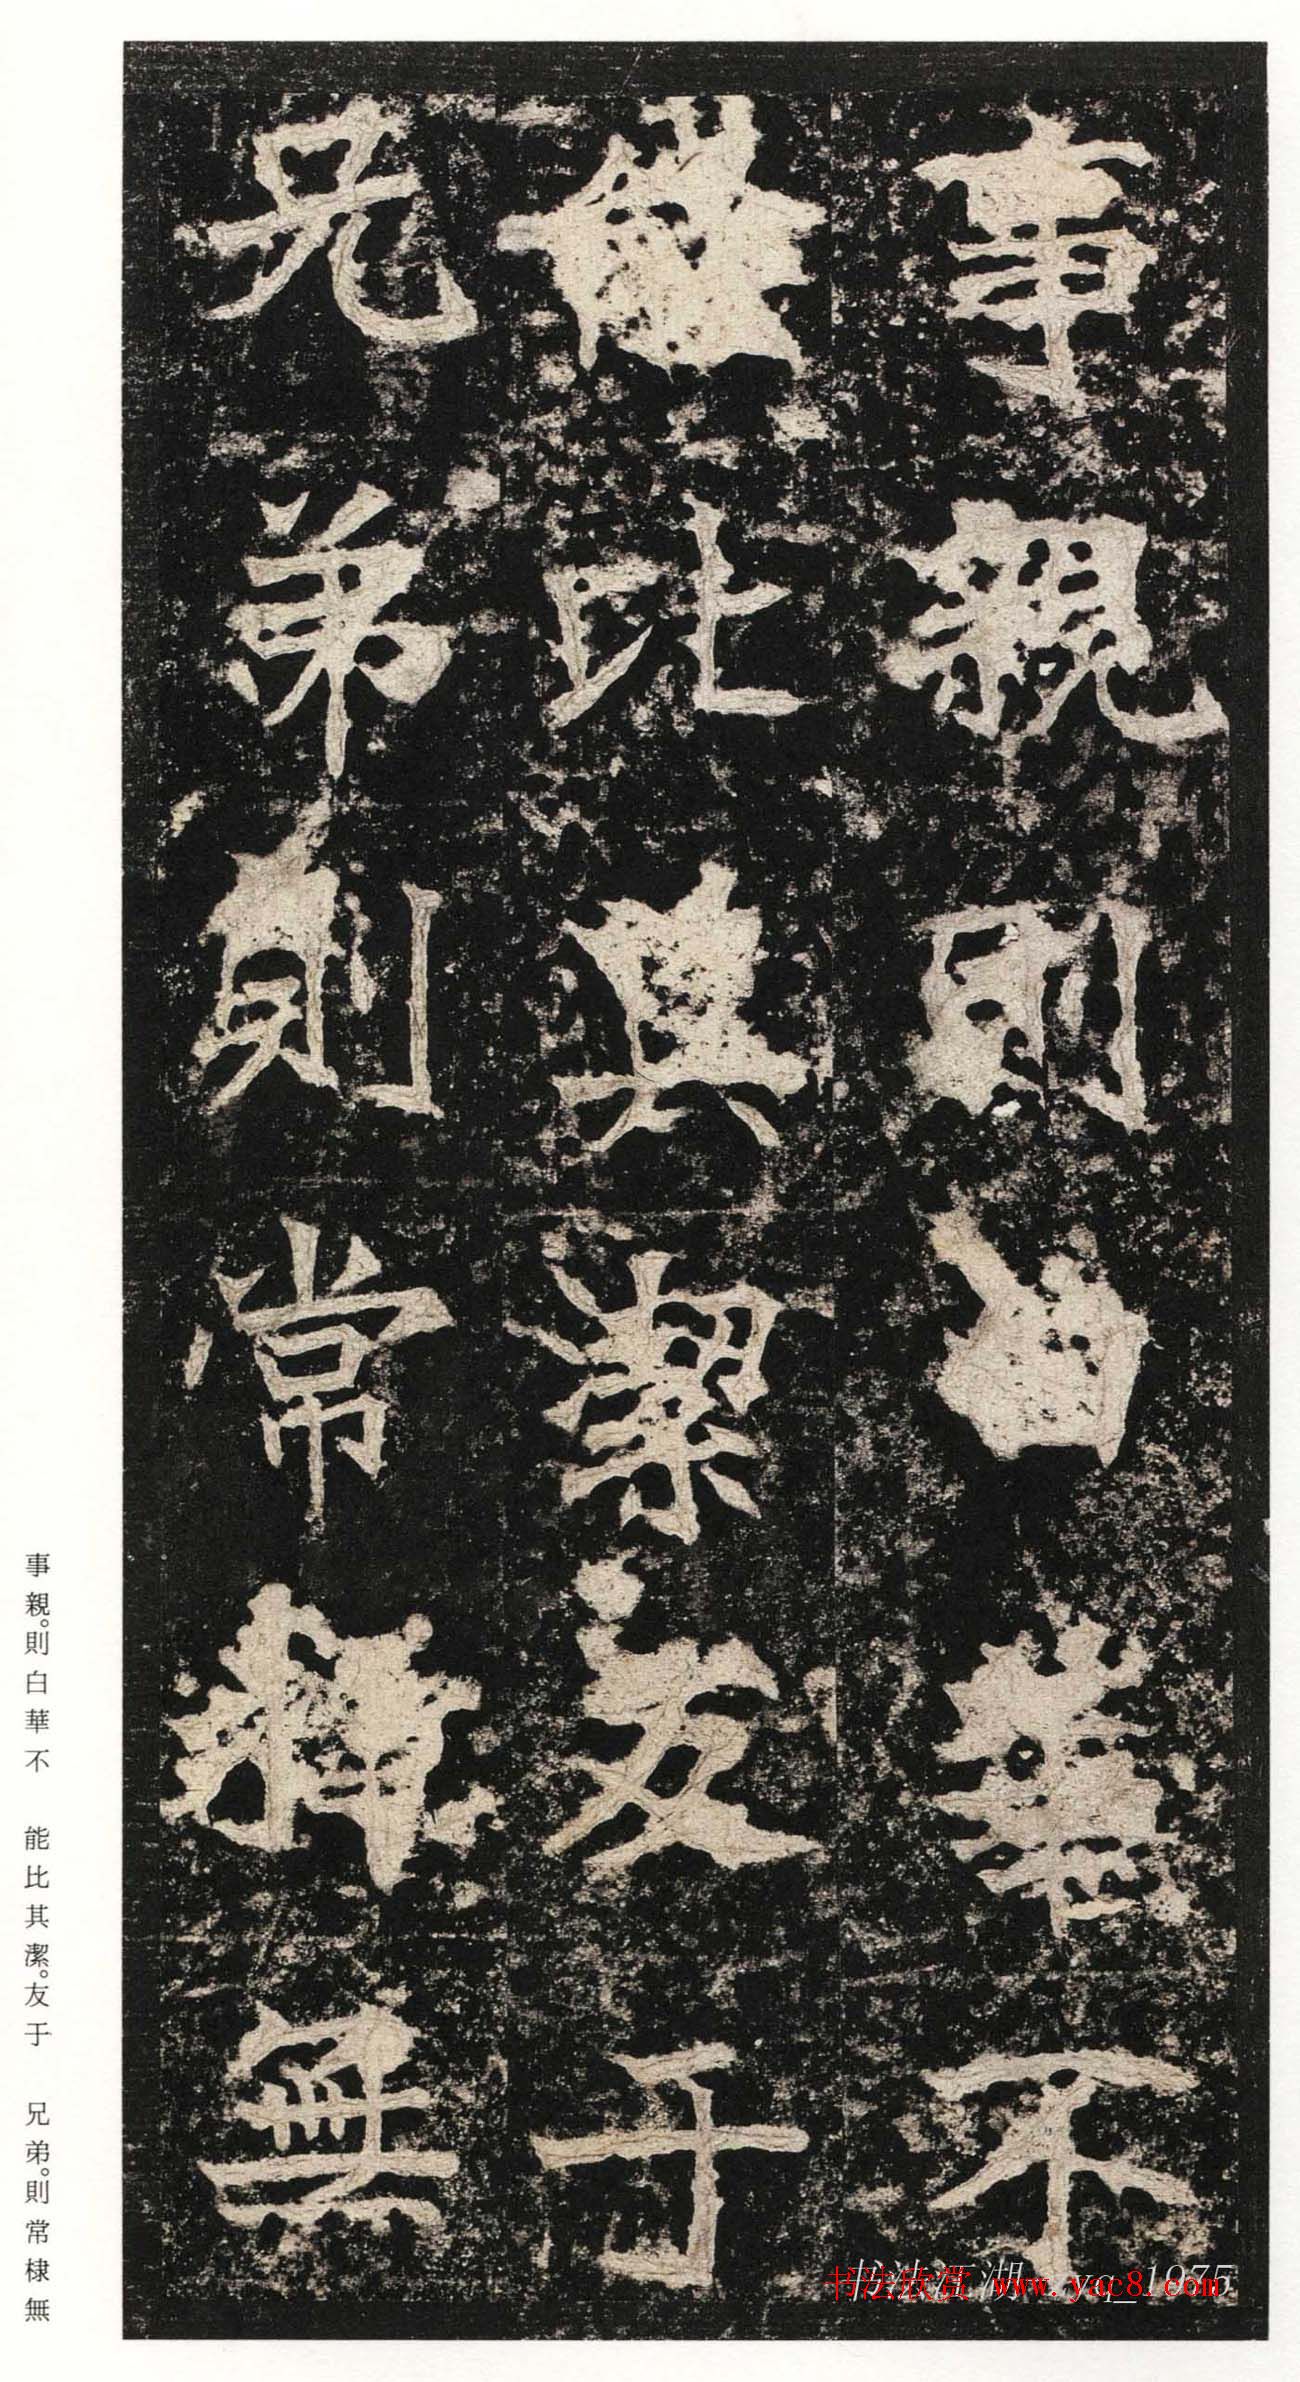 事親則白華不
能比其潔友于
兄弟則常棣無
事親。則白華不　能比其潔。友于　兄弟。則常棣無
书法欣赏 www.yac8.com
书法江湖 yq_1975